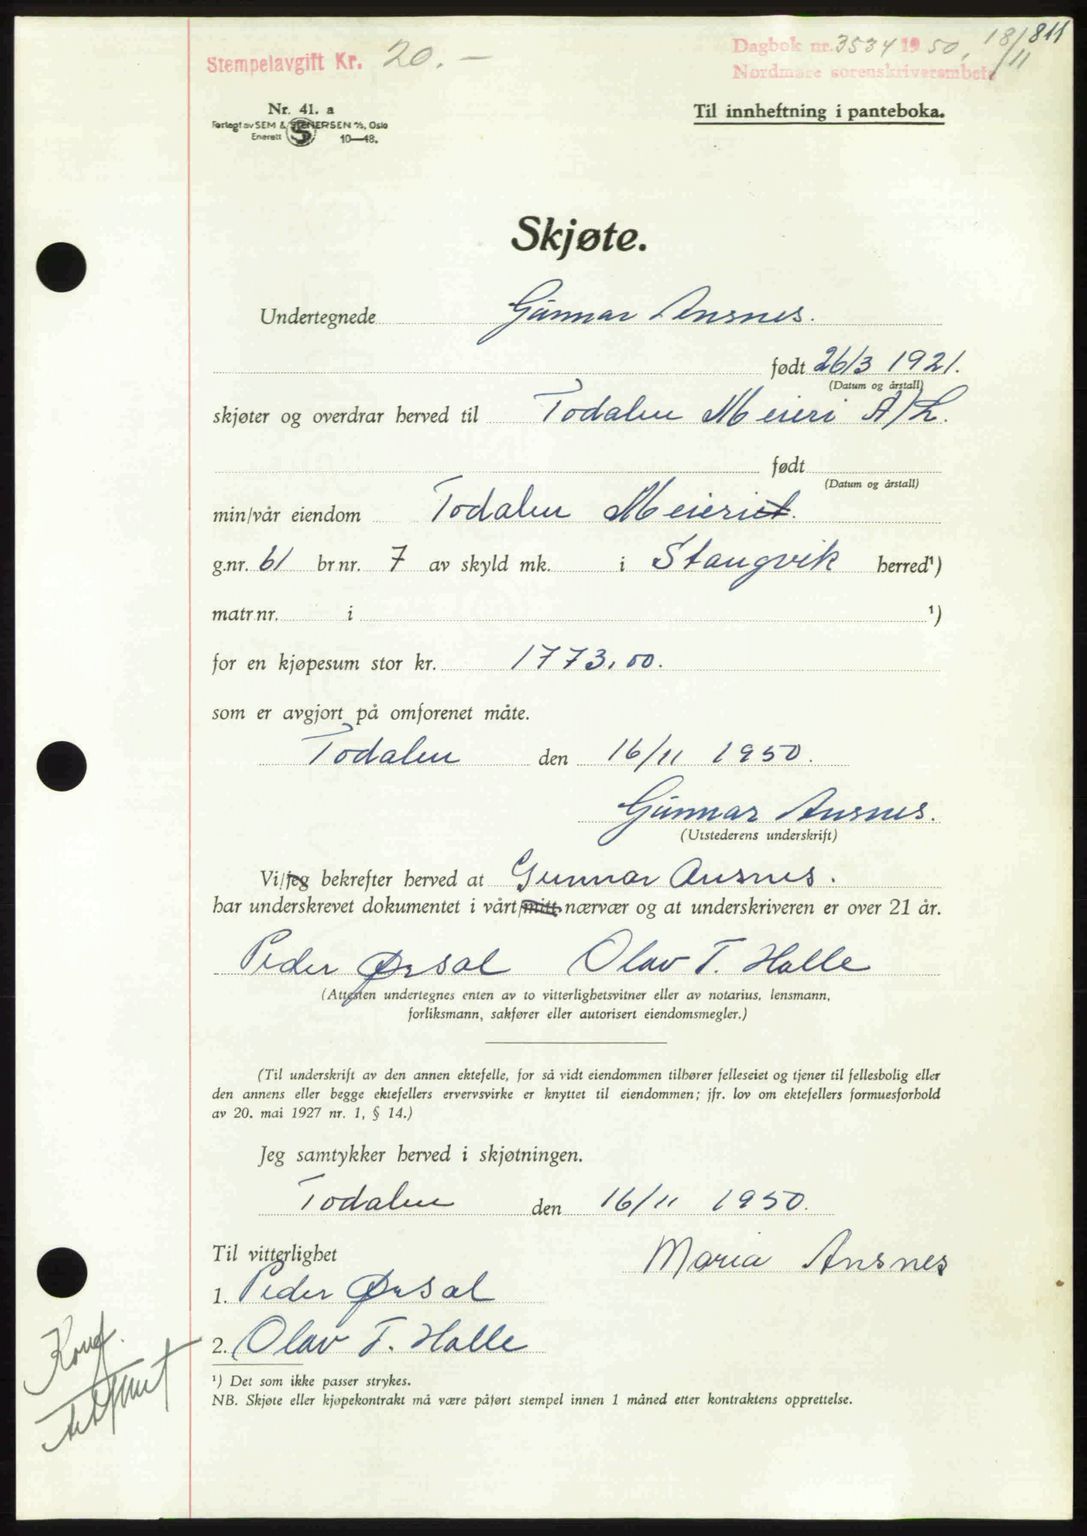 811
Stempelavgift Kr. 20.-
Dagbok nr. 3534 1950, 18/11
Nordmøre sorenskriverembete
Nr. 41. a
Forlagt av SEM & STENERSEN A/S, Oslo
Enerett S 10—48.
Til innheftning i panteboka.
Skjøte.
Undertegnede Gunnar Ansnes.
født 26/3 1921.
(Datum og årstall)
skjøter og overdrar herved til Todalen Meieri A/L.
født
(Datum og årstall)
min/vår eiendom Todalen Meieriet.
g.nr. 61 br.nr. 7 av skyld mk. i Stangvik herred¹)
matr.nr. i ¹)
for en kjøpesum stor kr. 1773,00.
som er avgjort på omforenet måte.
Todalen den 16/11 1950.
Gunnar Ansnes.
(Utstederens underskrift)
Vi/jeg bekrefter herved at Gunnar Ansnes.
har underskrevet dokumentet i vårt/mitt nærvær og at underskriveren er over 21 år.
Peder Ørsal Olav T. Halle
(Attesten undertegnes enten av to vitterlighetsvitner eller av notarius, lensmann,
forliksmann, sakfører eller autorisert eiendomsmegler.)
(Til underskrift av den annen ektefelle, for så vidt eiendommen tilhører felleseiet og tjener til fellesbolig eller
den annens eller begge ektefellers ervervsvirke er knyttet til eiendommen; jfr. lov om ektefellers formuesforhold
av 20. mai 1927 nr. 1, § 14.)
Jeg samtykker herved i skjøtningen.
Todalen den 16/11 1950.
Til vitterlighet Maria Ansnes
1. Peder Ørsal
2. Olav T. Halle
Konf.
¹) Det som ikke passer strykes.
NB. Skjøte eller kjøpekontrakt må være påført stempel innen 1 måned etter kontraktens opprettelse.